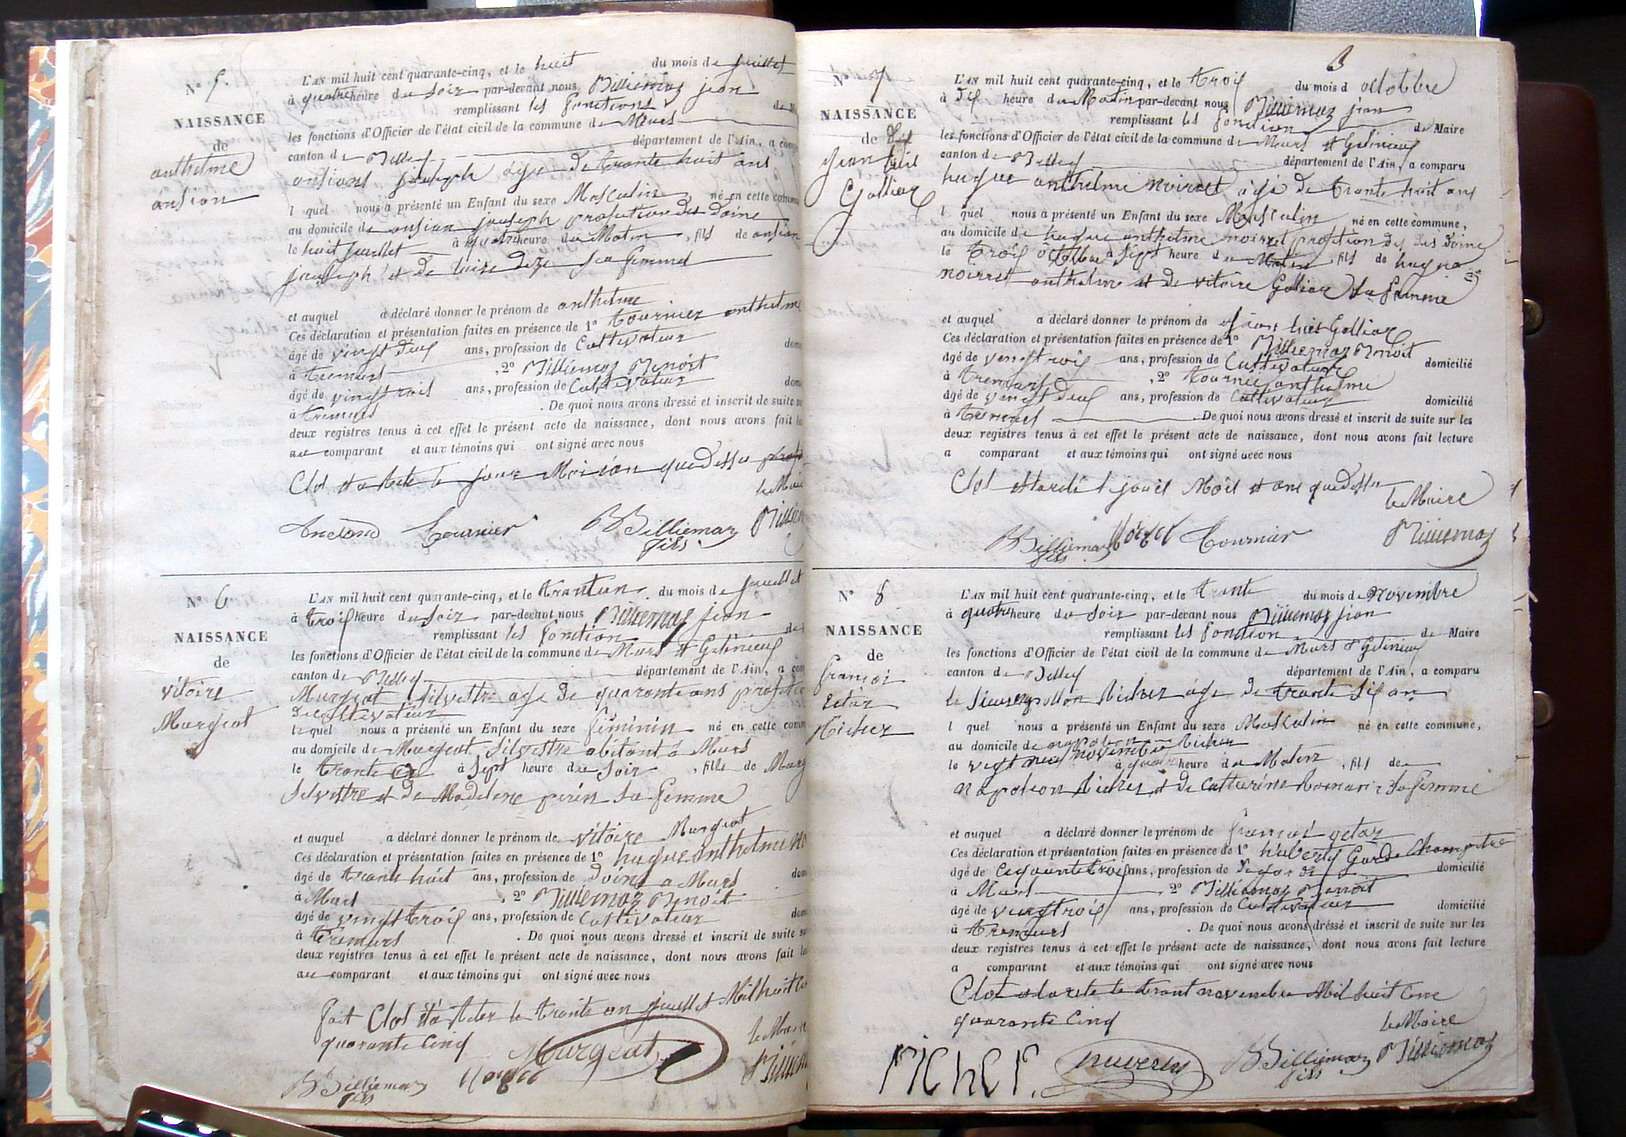 N° 5.
NAISSANCE
de
anthelme
ansion
L'AN mil huit cent quarante-cinq, et le huit du mois de juillet
à quatre heure du Soir par-devant nous Billiemaz jean
remplissant les fonctions
les fonctions d'Officier de l'état civil de la commune de Murs
canton de Belley département de l'Ain, a comp
ansions joseph age de trante huit ans
l quel nous a présenté un Enfant du sexe Masculin né en cette commune
au domicile de ansion joseph profetion de doine
le huit juillet à quatre heure du Matin, fils de ansion
joseph et de sa femme
et auquel a déclaré donner le prénom de anthelme
Ces déclaration et présentation faites en présence de 1° tournier anthelme
âgé de vingt deus ans, profession de Cultivateur
à tremurs , 2° Billiemaz Benoit
âgé de vingt rois ans, profession de Cultivateur
à tremurs . De quoi nous avons dressé et inscrit de suite su
deux registres tenus à cet effet le présent acte de naissance, dont nous avons fait le
au comparant et aux témoins qui ont signé avec nous
Clos et arete le jour Mois an que dessu
le Maire
Tournier B Billiemaz fils Billiem
N° 6
NAISSANCE
de
vitoire
Murgeat
L'AN mil huit cent quarante-cinq, et le trante un du mois de juillet
à trois heure du Soir par-devant nous Billiemaz jean
remplissant les fonction
les fonctions d'Officier de l'état civil de la commune de Murs et Gelinieus
canton de Belley département de l'Ain, a com
Murgeat Silvestre age de quarante ans profetion
de Cultivateur
le quel nous a présenté un Enfant du sexe féminin né en cette comm
au domicile de Murgeat Silvestre abitant a Murs
le trante à Sept heure du Soir, fille de Murg
Silvestre et de Madelene perin Sa femme
et auquel a déclaré donner le prénom de vitoire Murgeat
Ces déclaration et présentation faites en présence de 1° hugue anthelme no
âgé de trante huit ans, profession de doine a Murs
à Murs , 2° Billiemaz Benoit
âgé de vingt trois ans, profession de Cultivateur domi
à tremurs . De quoi nous avons dressé et inscrit de suite su
deux registres tenus à cet effet le présent acte de naissance, dont nous avons fait le
au comparant et aux témoins qui ont signé avec nous
fait Clos et areter le trante un juillet Mil huit Cen
quarante Cinq
le Maire
Murgeat
B Billiemaz fils Billiem
3
N° 7
NAISSANCE
de
jean luis
Golliar
L'AN mil huit cent quarante-cinq, et le trois du mois d octobre
à dis heure du Matin par-devant nous Billiemaz jean
remplissant les fonction de Maire
les fonctions d'Officier de l'état civil de la commune de Murs et Gelinieus
canton de Belley département de l'Ain, a comparu
hugue anthelme noirret age de trante huit ans
l quel nous a présenté un Enfant du sexe Masculin né en cette commune,
au domicile de hugue anthelme noirret profetion de doine
le trois octobre à Sept heure du Matin, fils de hugue
noirret anthelme et de vitoire Goliar Sa femme
et auquel a déclaré donner le prénom de jean luis Golliar
Ces déclaration et présentation faites en présence de 1° Billiemaz Benoit
âgé de vingt rois ans, profession de Cultivateur domicilié
à tremurs , 2° tournier anthelme
âgé de vingt deus ans, profession de Cultivateur domicilié
à tremurs . De quoi nous avons dressé et inscrit de suite sur les
deux registres tenus à cet effet le présent acte de naissance, dont nous avons fait lecture
a comparant et aux témoins qui ont signé avec nous
Clos et areté l jours Mois et ans que dessu
le Maire
B Billiemaz fils Tournier Billiemaz
N° 8
NAISSANCE
de
francois
Richer
L'AN mil huit cent quarante-cinq, et le trante du mois de novembre
à quatre heure du Soir par-devant nous Billiemaz jean
remplissant les fonction de Maire
les fonctions d'Officier de l'état civil de la commune de Murs et Gelinieus
canton de Belley département de l'Ain, a comparu
le Richer age de trante Sis an
l quel nous a présenté un Enfant du sexe Masculin né en cette commune,
au domicile de napoleon Richer
le vingt neuf novembre à quatre heure du Matin, fils de
napoleon Richer et de Catterine Sa femme
et auquel a déclaré donner le prénom de
Ces déclaration et présentation faites en présence de 1° huberty Garde Champetre
âgé de Cinquante trois ans, profession de domicilié
à Murs , 2° Billiemaz Benoit
âgé de vingt rois ans, profession de Cultivateur domicilié
à tremurs . De quoi nous avons dressé et inscrit de suite sur les
deux registres tenus à cet effet le présent acte de naissance, dont nous avons fait lecture
a comparant et aux témoins qui ont signé avec nous
Clos et arete le trant novembre Mil huit Cent
quarante Cinq
le Maire
richer B Billiemaz fils Billiemaz